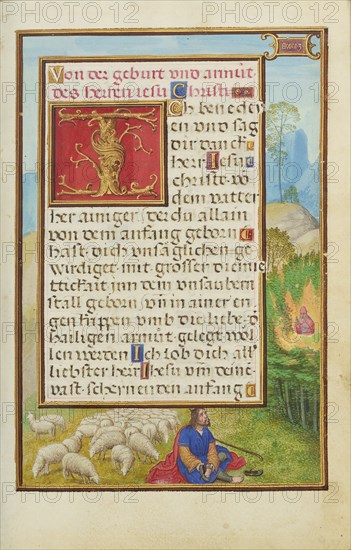 Von der geburt vnd armůt
des herren iesu Christi
Ich benedey
en vnd sag
dir danck
herr Iesu
christe vō
dem vatter
her ainiger der du allain
von dem anfang geborn
hast dich vnsaglichen ge
wirdiget mit grosser diemie
ttickait jnn dem vnsaubern
stall geborn vn̄ in ainer en
gen krippen vmb die liebe d
heiligen armůt gelegt wol
len werden Ich lob dich all
liebster herr Ihesu vm̄ deinē
vast scheynenden anfang
PHOTO12